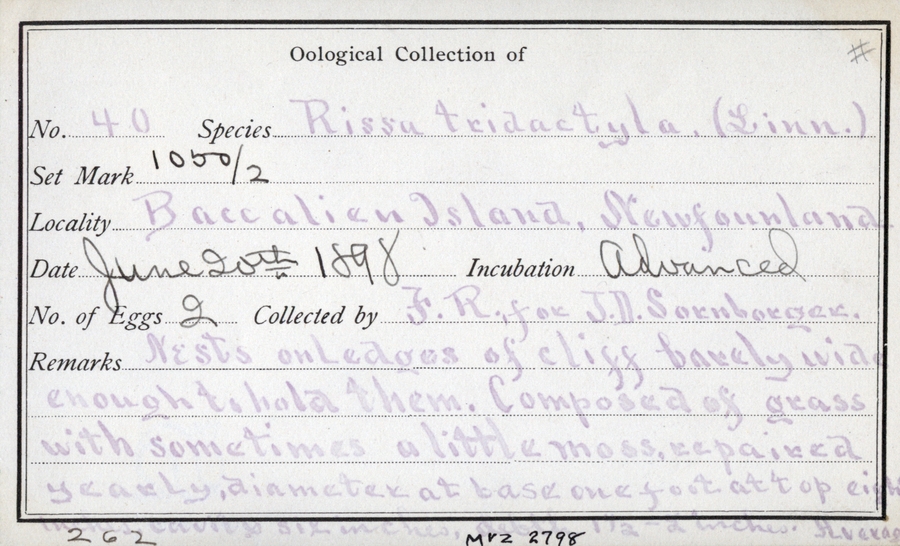 Oological Collection of #
No. 40 Species Rissa tridactyla. (Linn.)
Set Mark 1050/2
Locality Baccalieu Island, Newfounland.
Date June 20th 1898 Incubation Advanced
No. of Eggs 2 Collected by F. R., for J.D. Sornborger.
Remarks Nests on Ledges of cliff barely wide
enough to hold them. Composed of grass
with sometimes a little moss, repaired
yearly, diameter at base one foot at top eight
inches cavity six inches, depth 1 1/2 - 2 inches. Average
262 MVZ 2798